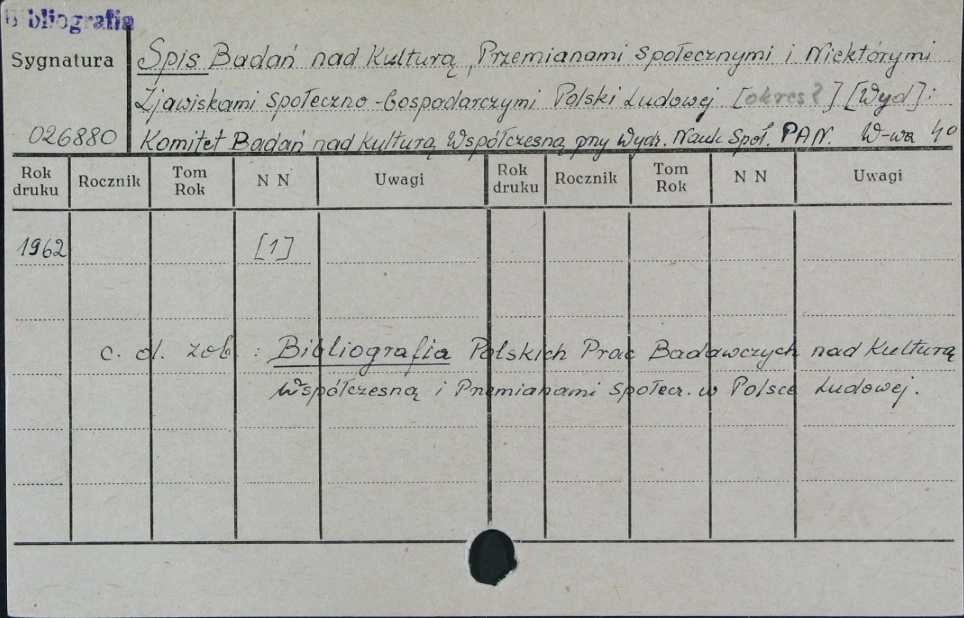 Bibliografia
Sygnatura
026880
Spis Badań nad Kulturą, Przemianami Społecznymi i Niektórymi
Zjawiskami Społeczno-Gospodarczymi Polski Ludowej [okres?] [Wyd]:
Komitet Badań nad Kulturą Współczesną przy Wydz. Nauk Społ. PAN. W-wa 4o
Rok druku Rocznik Tom Rok N N Uwagi Rok druku Rocznik Tom Rok N N Uwagi
1962 [1]
c. d. zob. : Bibliografia Polskich Prac Badawczych nad Kulturą
Współczesną i Przemianami Społecz. w Polsce Ludowej.